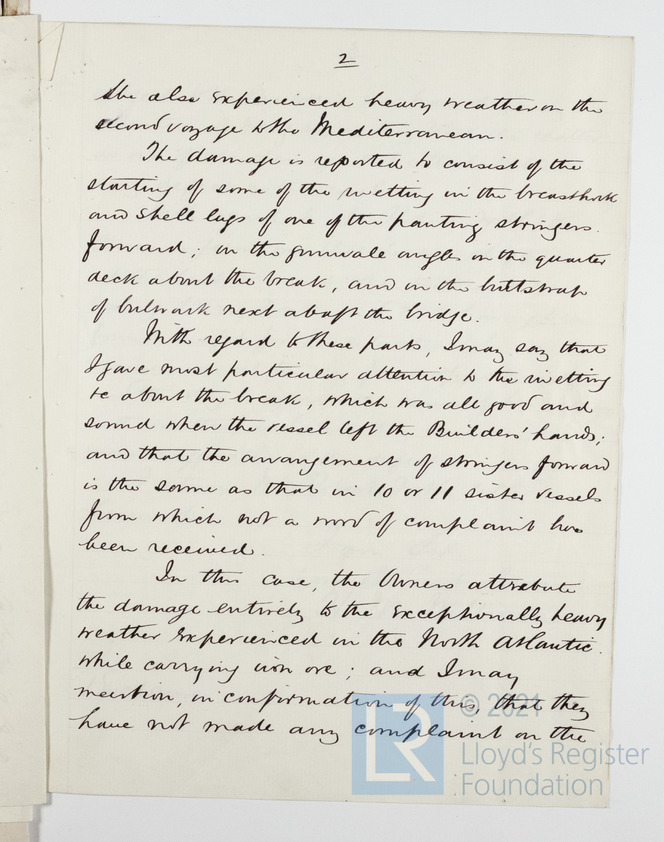 2
She also experienced heavy weather on the
second voyage to the Mediterranean.
The damage is reported to consist of the
starting of some of the rivetting in the breasthook
and shell lugs of one of the panting stringers
forward; in the gunwale angles on the quarter
deck about the break, and in the buttstrap
of bulwark next abaft the bridge.
With regard to these parts, I may say that
I gave most particular attention to the rivetting
&c about the break, which was all good and
sound when the vessel left the Builders' hands;
and that the arrangement of stringers forward
is the same as that in 10 or 11 sister vessels
from which not a word of complaint has
been received.
In this case, the Owners attribute
the damage entirely to the exceptionally heavy
weather experienced in the North Atlantic
while carrying iron ore; and I may
mention, in confirmation of this, that they
have not made any complaint on the
© 2021
LR
Lloyd's Register
Foundation